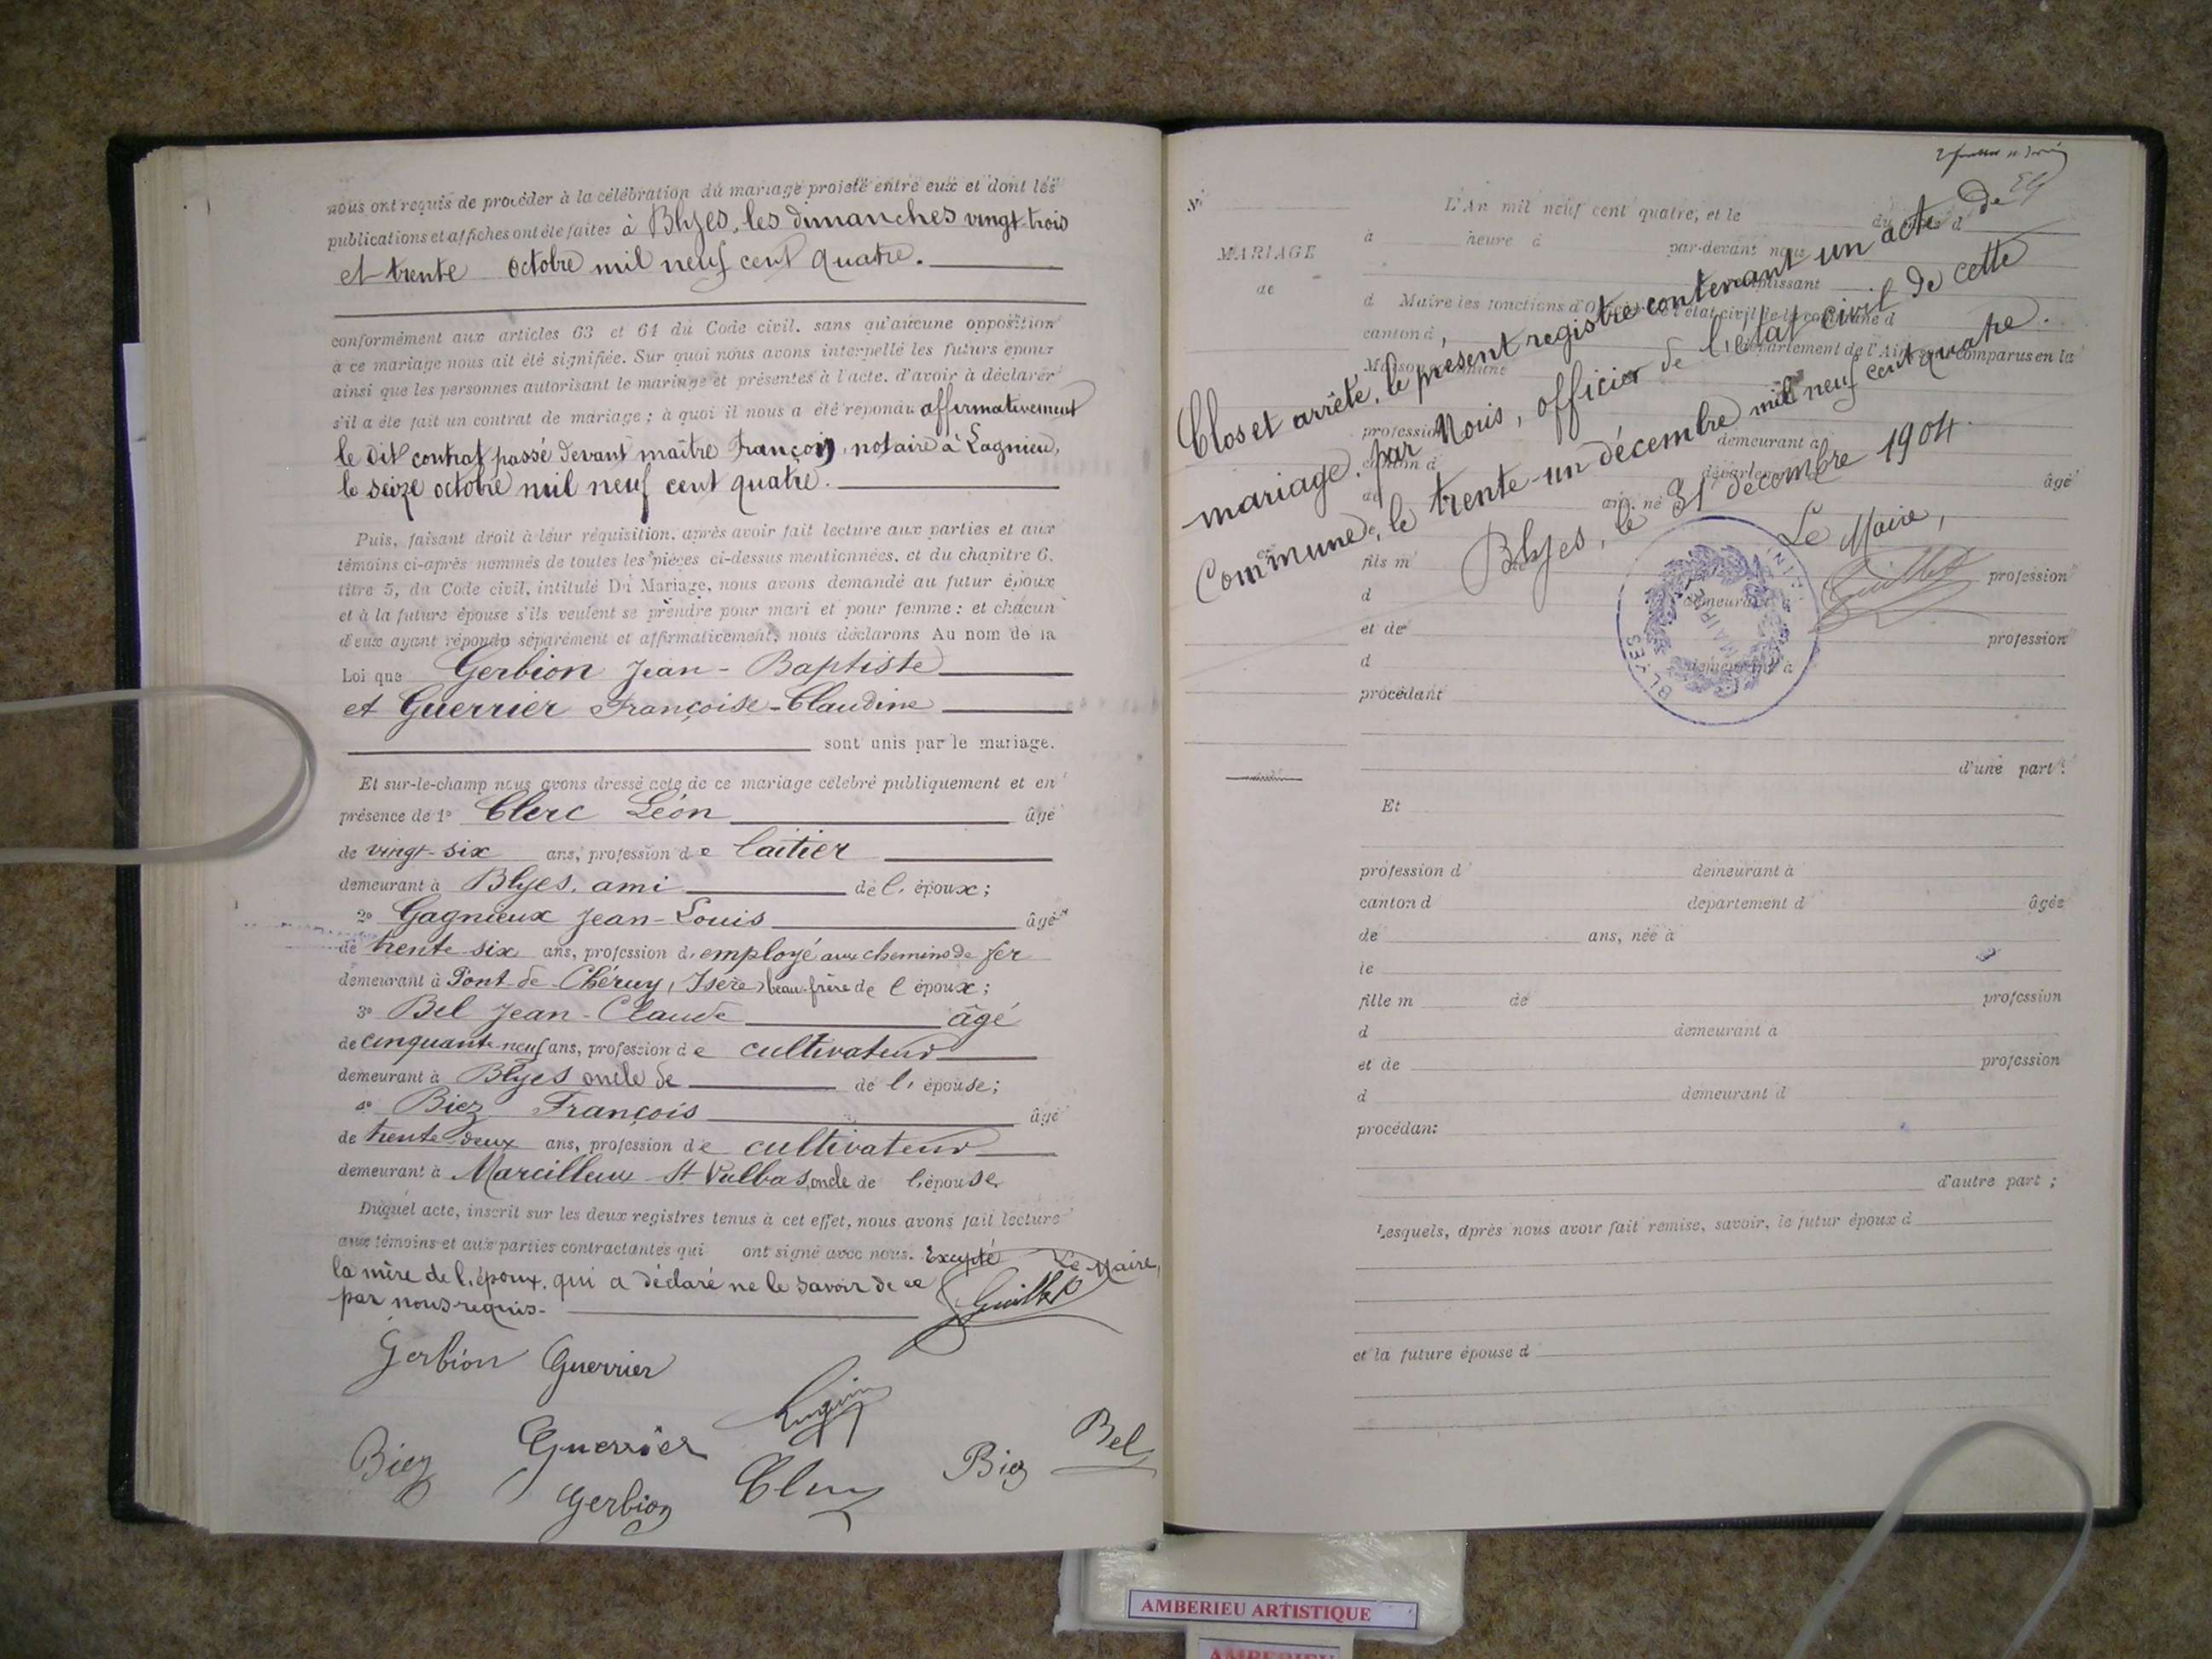 nous ont requis de procéder à la célébration du mariage projeté entre eux et dont les
publications et affiches ont été faites à Blyes, les dimanches vingt-trois
et trente octobre mil neuf cent quatre.
conformément aux articles 63 et 64 du Code civil, sans qu'aucune opposition
à ce mariage nous ait été signifiée. Sur quoi nous avons interpellé les futurs époux
ainsi que les personnes autorisant le mariage et présentes à l'acte, d'avoir à déclarer
s'il a été fait un contrat de mariage ; à quoi il nous a été répondu affirmativement
le dit contrat passé devant maître François, notaire à Lagnieu,
le seize octobre mil neuf cent quatre.
Puis, faisant droit à leur réquisition, après avoir fait lecture aux parties et aux
témoins ci-après nommés de toutes les pièces ci-dessus mentionnées, et du chapitre 6,
titre 5, du Code civil, intitulé Du Mariage, nous avons demandé au futur époux
et à la future épouse s'ils veulent se prendre pour mari et pour femme : et chacun
d'eux ayant répondu séparément et affirmativement, nous déclarons Au nom de la
Loi que Gerbion Jean-Baptiste
et Guerrier Françoise-Claudine
sont unis par le mariage.
Et sur-le-champ nous avons dressé acte de ce mariage célébré publiquement et en
présence de 1° Clerc Léon âgé
de vingt-six ans, profession de laitier
demeurant à Blyes, ami de l'époux ;
2° Gagnieux Jean-Louis âgé
de trente-six ans, profession d'employé aux chemins de fer
demeurant à Pont-de-Chéruy, (Isère) beau-frère de l'époux ;
3° Bel Jean-Claude âgé
de cinquante-neuf ans, profession de cultivateur
demeurant à Blyes oncle de de l'épouse ;
4° Biez François âgé
de trente-deux ans, profession de cultivateur
demeurant à Marcilleux St Vulbas, oncle de l'épouse
Duquel acte, inscrit sur les deux registres tenus à cet effet, nous avons fait lecture
aux témoins et aux parties contractantes qui ont signé avec nous. Excepté Le Maire,
la mère de l'époux, qui a déclaré ne le savoir de ce
par nous requis. Guillet
Gerbion Guerrier
Biez Guerrier Biez Bel
Gerbion
N°
MARIAGE
de
L'An mil neuf cent quatre, et le du d
à heure d par-devant nous
d Maire les fonctions d'Officier de l'état civil de la commune d
canton d département de l'Ain comparus en la
Maison commune
profession demeurant à
canton d département
de ans, né âgé
Clos et arrêté, le présent registre contenant un acte de
mariage, par Nous, officier de l'état civil de cette
Commune, le trente-un décembre mil neuf cent quatre.
Blyes, le 31 décembre 1904.
Le Maire,
Guillet
MAIRIE
BLYES
fils m profession
d demeurant à
et de profession
d demeurant à
procédant
d'une part :
Et
profession d demeurant à
canton d département d âgée
de ans, née à
le
fille m de profession
d demeurant à
et de profession
d demeurant d
procédant
d'autre part ;
Lesquels, après nous avoir fait remise, savoir, le futur époux d
et la future épouse d
AMBERIEU ARTISTIQUE
AMBERIEU